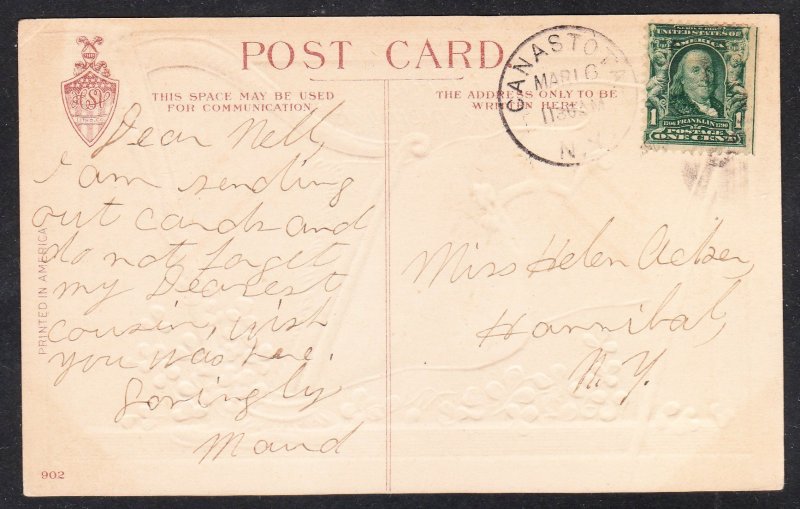 POST CARD
THIS SPACE MAY BE USED
FOR COMMUNICATION.
THE ADDRESS ONLY TO BE
WRITTEN HERE.
CANASTOTA
MAR 16
1130AM
N.Y.
UNITED STATES OF
AMERICA
1 FRANKLIN 1
POSTAGE
ONE CENT
Dear Nell,
I am sending
out cards and
do not forget
my Dearest
cousin, wish
you was here.
Lovingly
Maud
Miss Helen Acker,
Hannibal,
N.Y.
PRINTED IN AMERICA
902